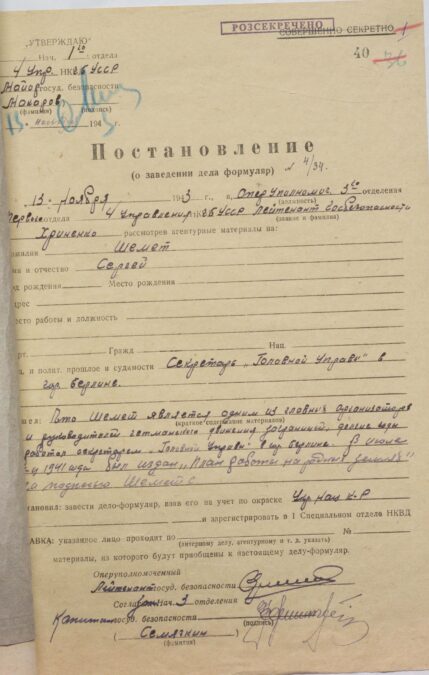 РОЗСЕКРЕЧЕНО
СОВЕРШЕННО СЕКРЕТНО
„УТВЕРЖДАЮ“
40
Нач. 1го отдела
4 Упр. НКГБ УССР
Майор госуд. безопасности
Макаров
(фамилия) (подпись)
13 194 3
Постановление
(о заведении дела формуляр) № 4/34.
13 Ноября 1943 г., я, Оперуполномоч. 3го отделения
(должность)
Первого отдела 4 Управления НКГБ УССР Лейтенант Госбезопасности
(звание и фамилия)
Хриненко рассмотрев агентурные материалы на:
амилия Шемет
мя и отчество Сергей
од рождения Место рождения
дрес
есто работы и должность
рт. Гражд Нац.
ц. и полит. прошлое и судимости Секретарь „Головной Управи" в
гор Берлине.
шел: Что Шемет является одним из главных организаторов
(краткое содержание материалов)
и руководителей гетманского движения заграницей, долгие годы
работал секретарем „Головной Управи" в гор Берлине. В июне
1941 года был издан „План работы на родных землях"
за подписью Шемет С
становил: завести дело-формуляр, взяв его на учет по окраске Укр нац к-р
и зарегистрировать в I Специальном отделе НКВД
АВКА: указанное лицо проходит по №
(литерному делу, агентурному и т. д. указать)
материалы, из которого будут приобщены к настоящему делу-формуляр.
Оперуполномоченный
Лейтенант госуд. безопасности
Соглас Нач. 3 отделения
Капитан госуд. безопасности
(подпись)
( Семягкин )
(фамилия)